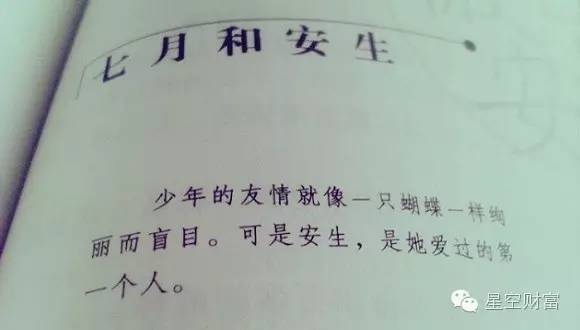 七月和安生
少年的友情就像一只蝴蝶一样绚
丽而盲目。可是安生，是她爱过的第
一个人。
星空财富